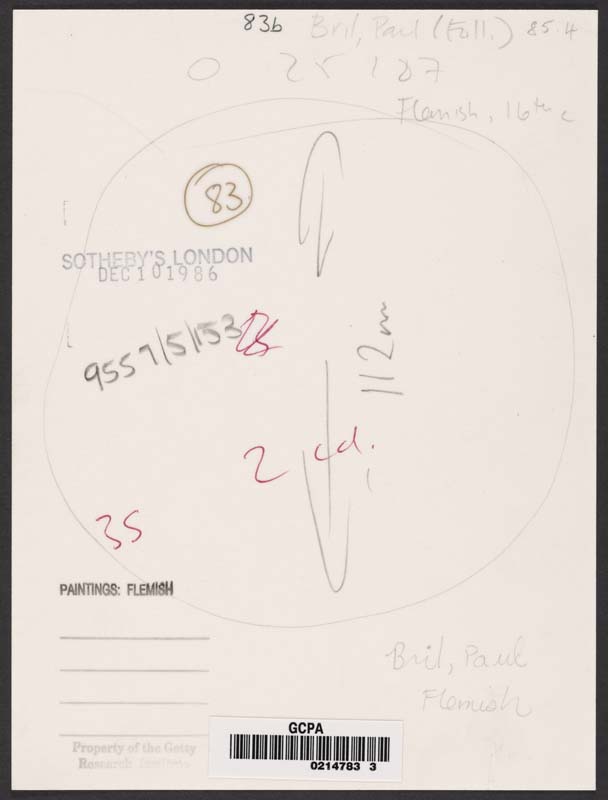 83b Bril, Paul (Foll.) 85.4
0 25 107
Flemish, 16th c
83.
SOTHEBY'S LONDON
DEC 10 1986
9557/5/153
112m
2 cd.
35
PAINTINGS: FLEMISH
Bril, Paul
Flemish
Property of the Getty
Research Institute
GCPA
0214783 3